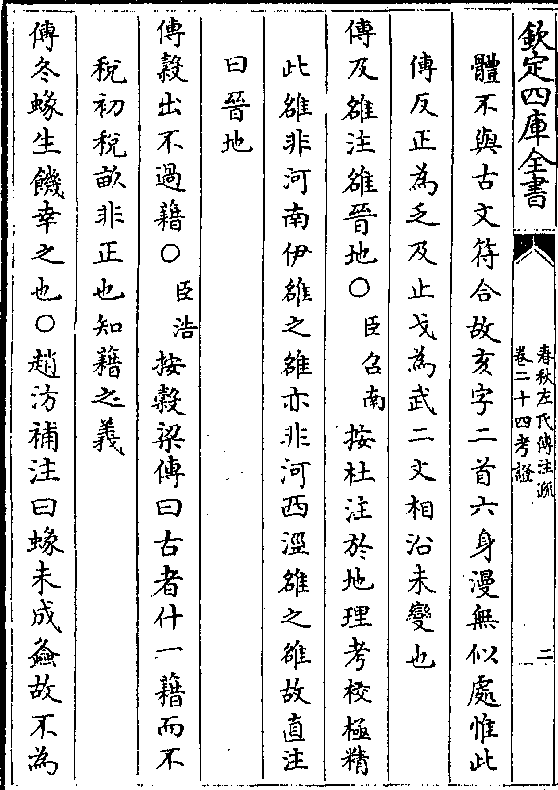 欽定四庫全書
春秋左氏傳注疏
卷二十四考證
二
體不與古文符合故亥字二首六身漫無似處惟此
傳反正為乏及止戈為武二文相沿未變也
傳及雒注雒晉地〇臣召南按杜注於地理考校極精
此雒非河南伊雒之雒亦非河西涇雒之雒故直注
曰晉地
傳穀出不過藉〇臣浩按穀梁傳曰古者什一藉而不
稅初稅畝非正也知藉之義
傳冬蝝生饑幸之也〇趙汸補注曰蝝未成螽故不為